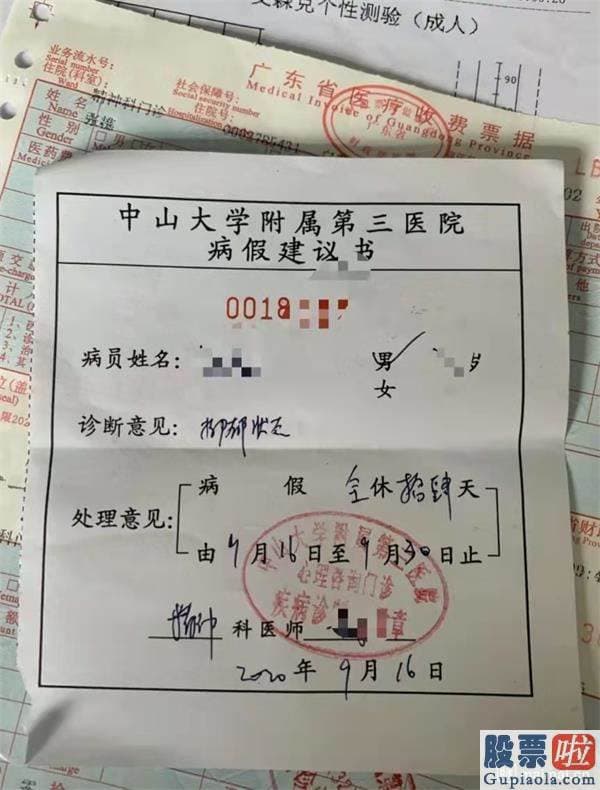 艾森克个性测验（成人）
90
业务流水号：
Serial number
住院(科室)
Ward 精神科门诊
社会保障号：
Social security number
住院号：
Hospitalization
广东省医疗收费票据
Medical Invoice of Guangdong Province
姓名
Name
性别
Gender
医药费
中山大学附属第三医院
病假建议书
0018
病员姓名：
男
女
岁
诊断意见：抑郁状态
处理意见：
病 假 全休拾肆天
由9月16日至9月30日止
中山大学附属第三医院
心理咨询门诊
疾病诊
章
精神科医师
2020年9月16日
股票啦
Gupiaola.com